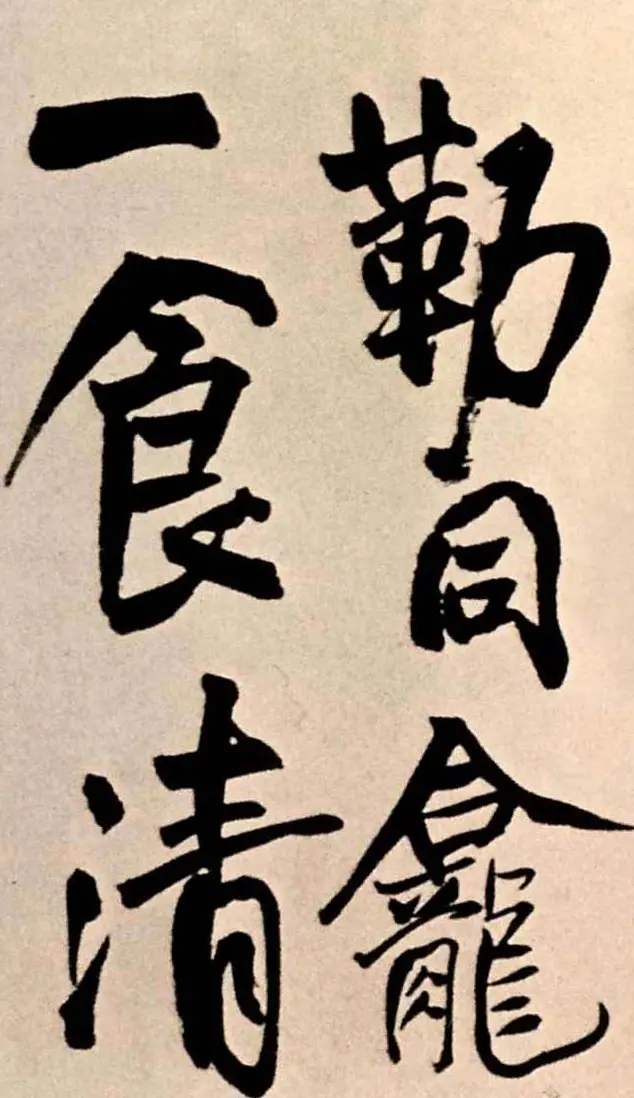 勒同龕
一食清